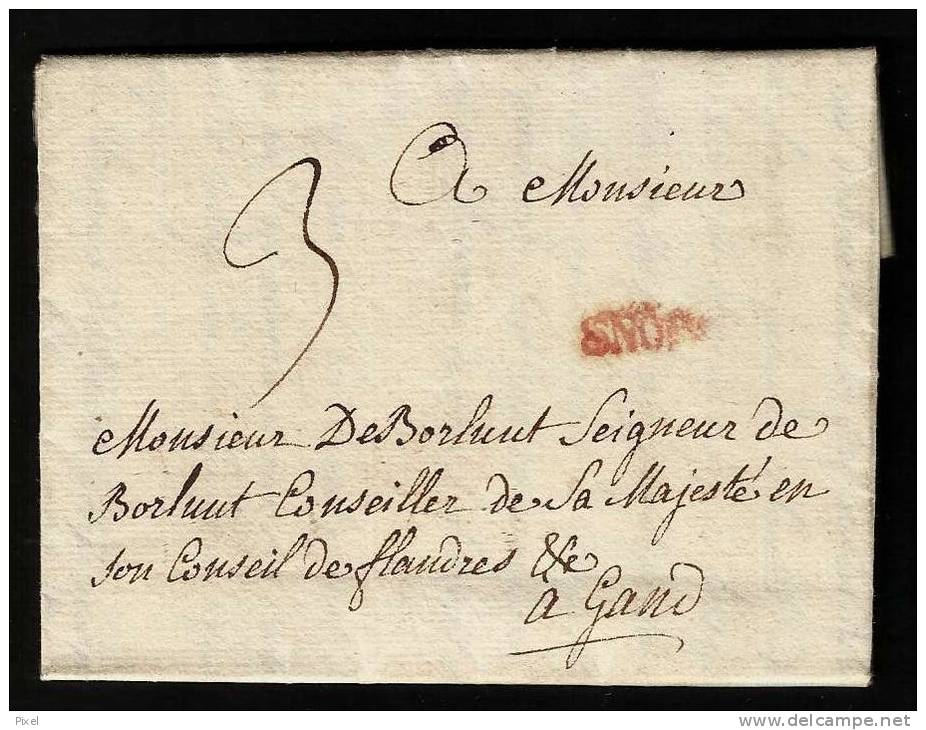 3
A Monsieur
Monsieur De Borluut Seigneur de
Borluut Conseiller de Sa Majesté en
son Conseil de flandres &c
a Gand
Pixel
www.delcampe.net